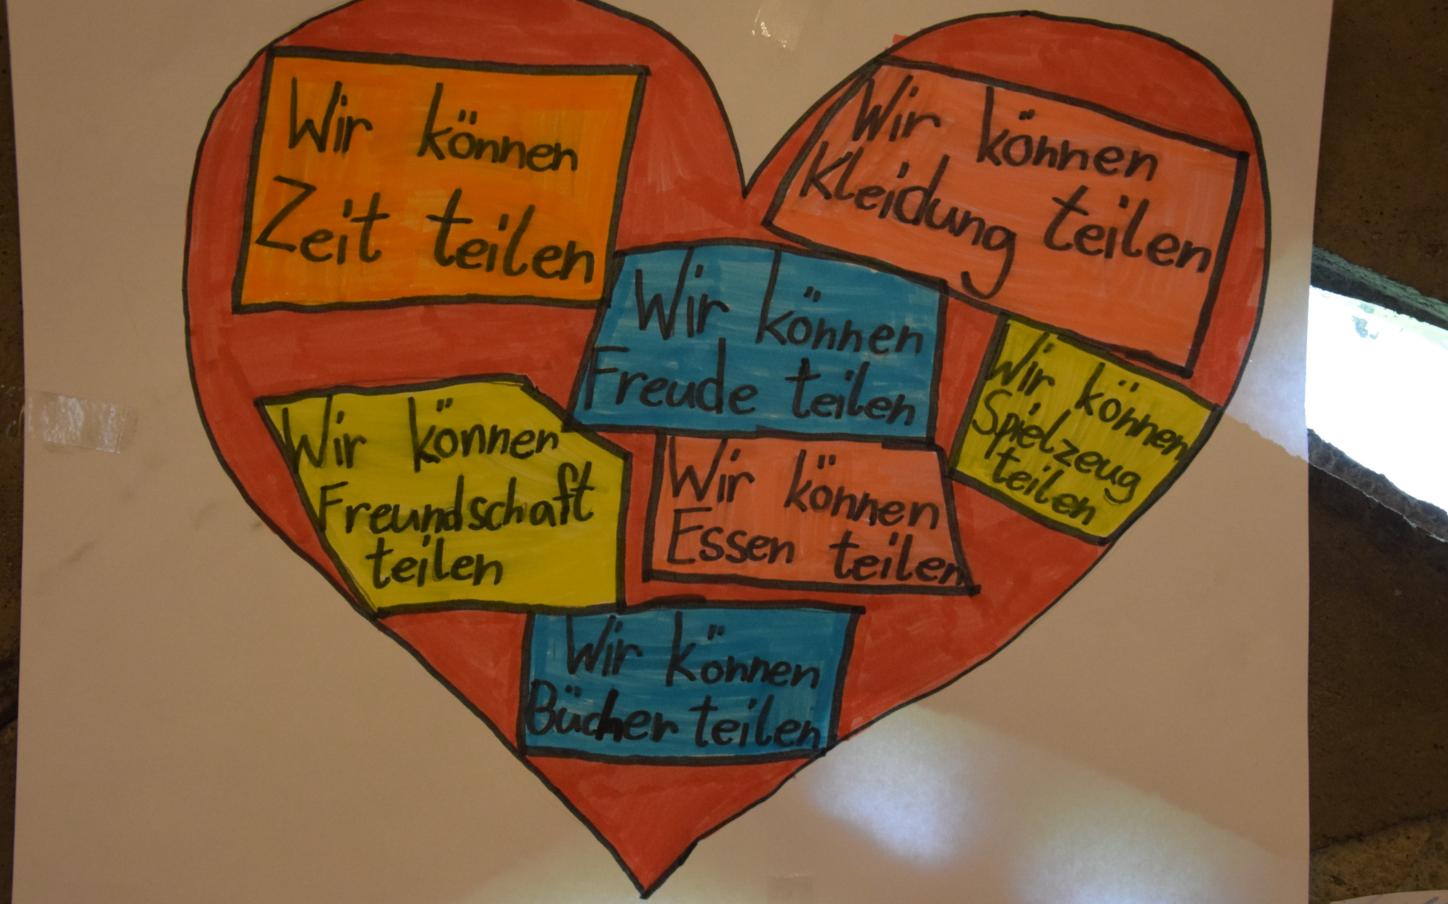 Wir können
Zeit teilen
Wir können
Kleidung teilen
Wir können
Freude teilen
Wir können
Spielzeug
teilen
Wir können
Freundschaft
teilen
Wir können
Essen teilen
Wir können
Bücher teilen